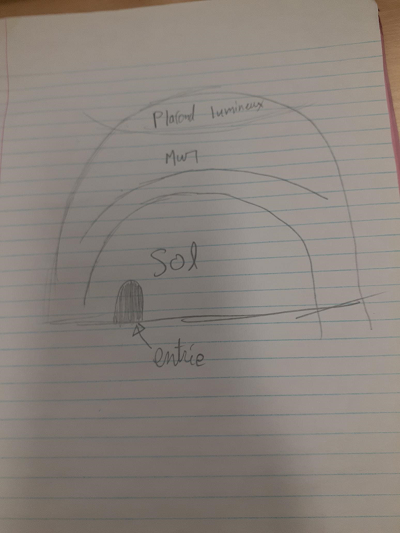 Plafond lumineux
Mur
Sol
entrée